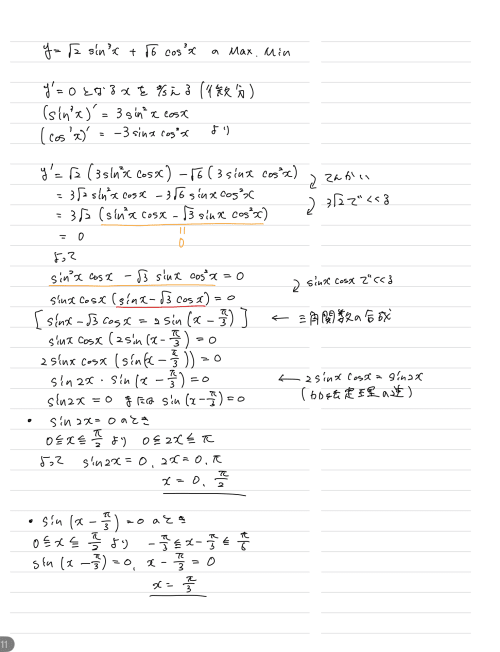 y = √2 sin³x + √6 cos³x の Max, Min
y' = 0 となる x を考える (係数分)
(sin³x)' = 3 sin²x cosx
(cos³x)' = -3 sinx cos²x より
y' = √2 (3sin²x cosx) - √6 (3 sinx cos²x)
= 3√2 sin²x cosx - 3√6 sinx cos²x てんかい
= 3√2 (sin²x cosx - √3 sinx cos²x) 3√2でくくる
= 0
=
0
よって
sin²x cosx - √3 sinx cos²x = 0
sinx cosx (sinx - √3 cosx) = 0 sinx cosx でくくる
[ sinx - √3 cosx = 2 sin (x - π/3) ] ← 三角関数の合成
sinx cosx (2sin (x - π/3) = 0
2sinx cosx (sin(x - π/3)) = 0
sin2x · sin (x - π/3) = 0 ← 2 sinx cosx = sin2x
sin2x = 0 または sin (x - π/3) = 0 (加法定理の逆)
• sin2x = 0 のとき
0 ≦ x ≦ π/2 より 0 ≦ 2x ≦ π
よって sin2x = 0, 2x = 0, π
x = 0, π/2
• sin (x - π/3) = 0 のとき
0 ≦ x ≦ π/2 より -π/3 ≦ x - π/3 ≦ π/6
sin (x - π/3) = 0, x - π/3 = 0
x = π/3
11